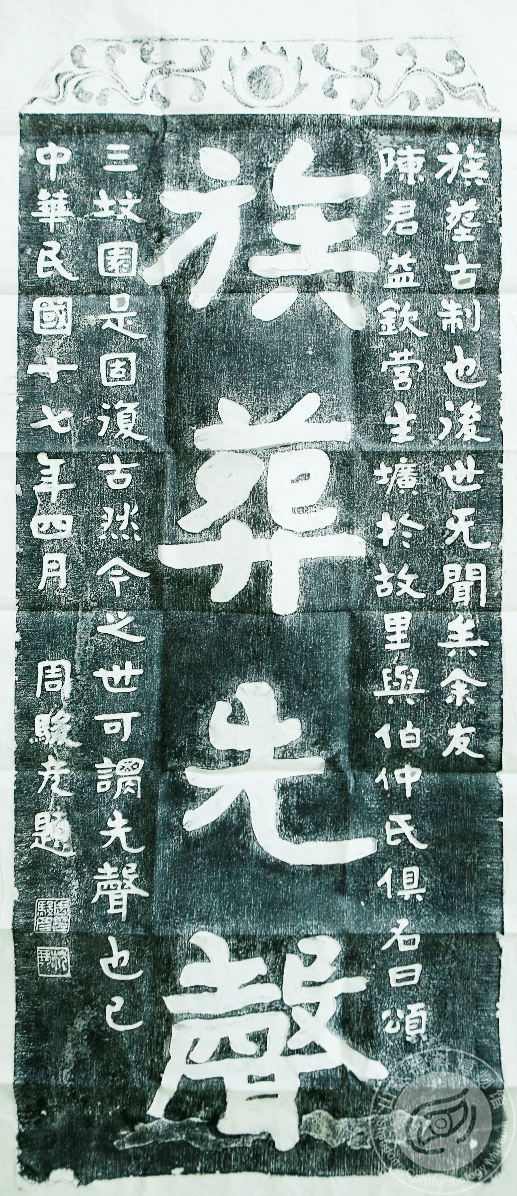 族塟古制也後世无聞矣余友
陳君益欽營生壙於故里與伯仲氏俱名曰頌
族葬先聲
三坟園是固復古然今之世可謂先聲也已
中華民國十七年四月 周駿彥題